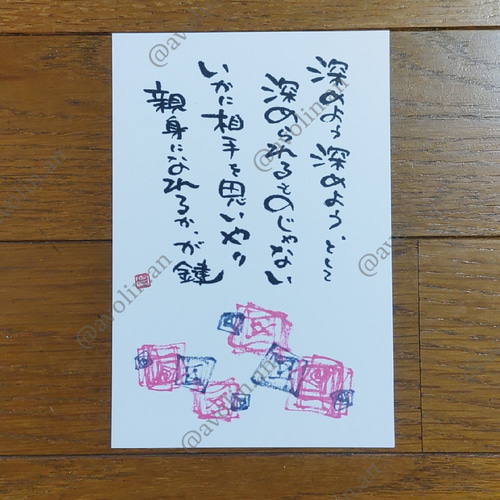 深めよう深めよう、として
深められるものじゃない
いかに相手を思いやり
親身になれるか、が鍵
@avolinan
@avolinan
@avolinan
@avolinan
@avolinan